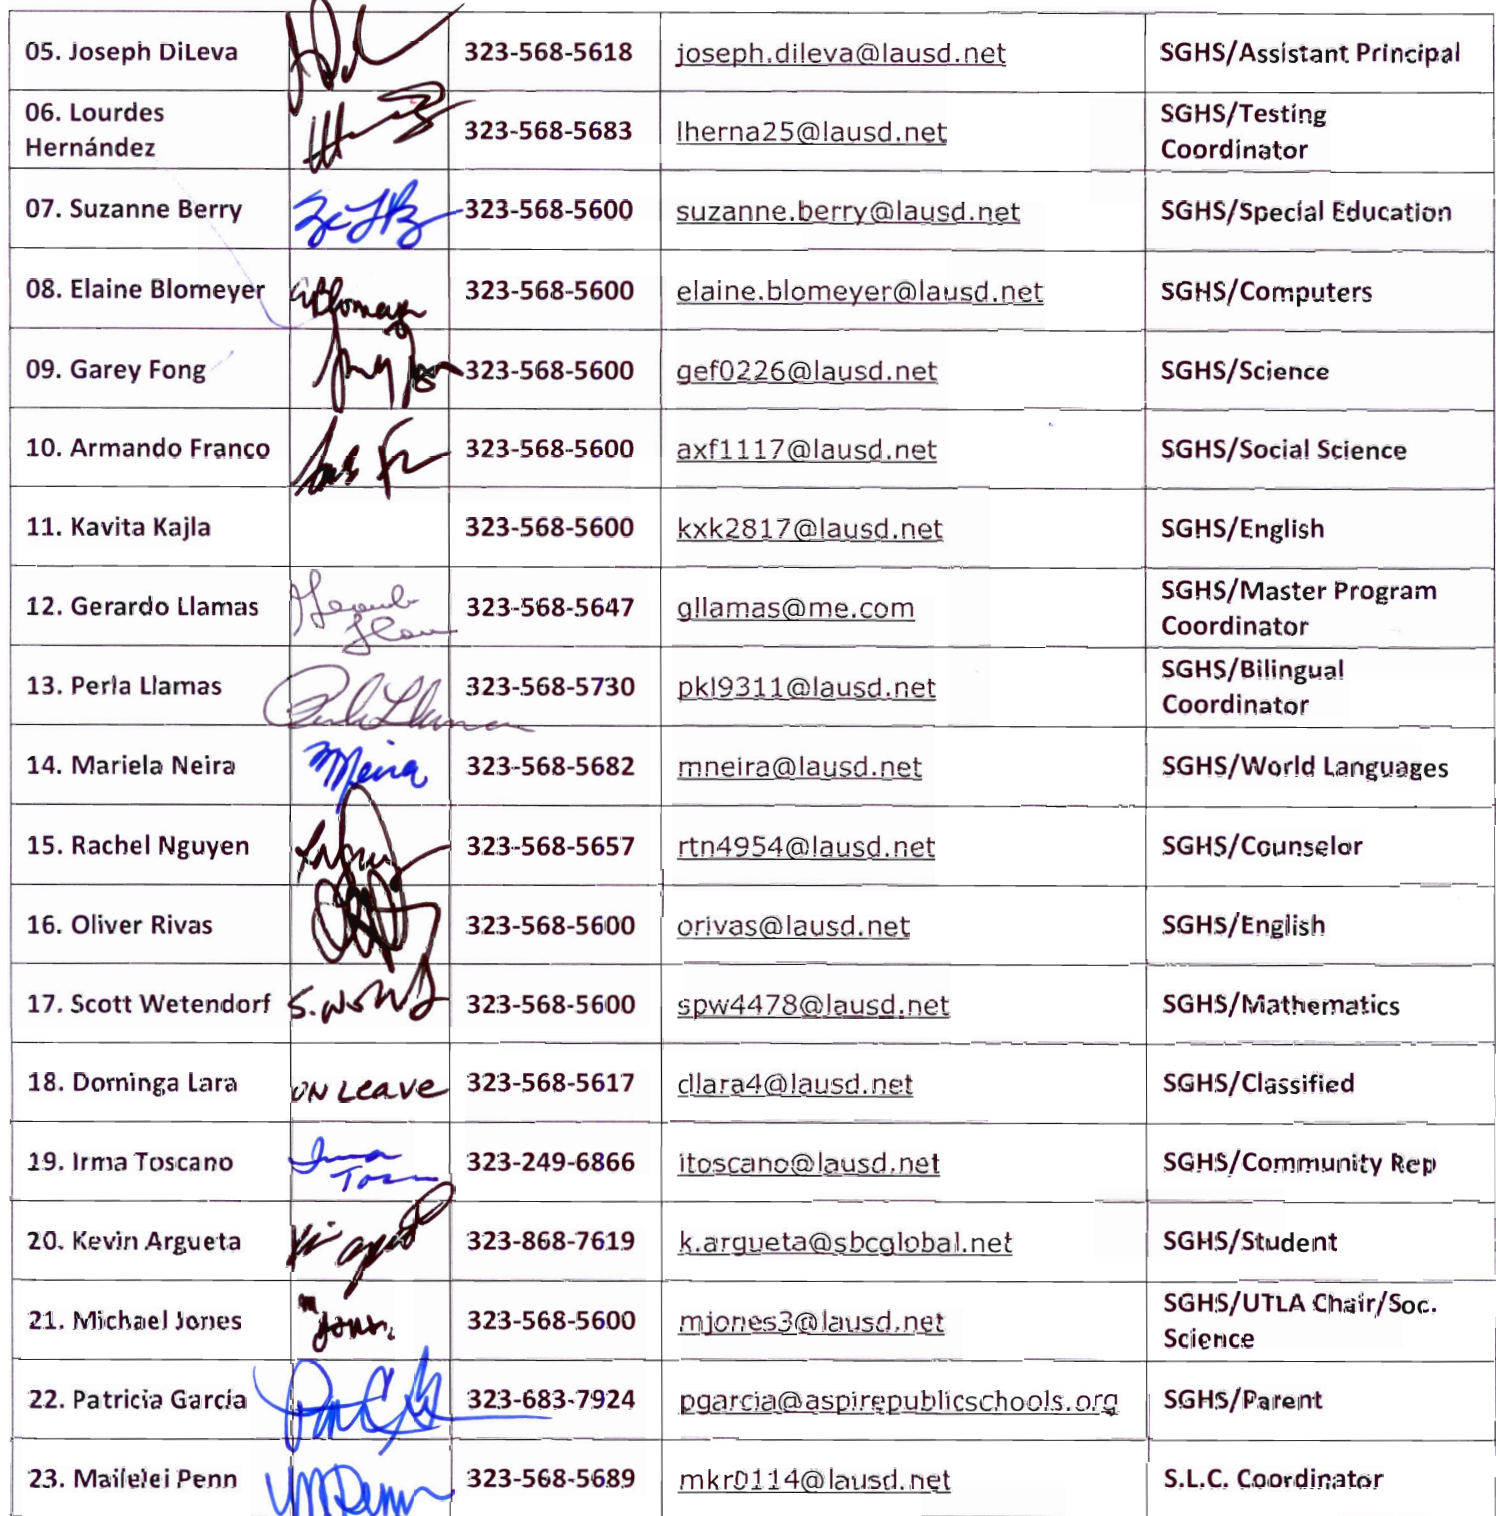 05. Joseph DiLeva 323-568-5618 joseph.dileva@lausd.net SGHS/Assistant Principal
06. Lourdes
Hernández 323-568-5683 lherna25@lausd.net SGHS/Testing
Coordinator
07. Suzanne Berry 323-568-5600 suzanne.berry@lausd.net SGHS/Special Education
08. Elaine Blomeyer 323-568-5600 elaine.blomeyer@lausd.net SGHS/Computers
09. Garey Fong 323-568-5600 gef0226@lausd.net SGHS/Science
10. Armando Franco 323-568-5600 axf1117@lausd.net SGHS/Social Science
11. Kavita Kajla 323-568-5600 kxk2817@lausd.net SGHS/English
12. Gerardo Llamas 323-568-5647 gllamas@me.com SGHS/Master Program
Coordinator
13. Perla Llamas 323-568-5730 pkl9311@lausd.net SGHS/Bilingual
Coordinator
14. Mariela Neira 323-568-5682 mneira@lausd.net SGHS/World Languages
15. Rachel Nguyen 323-568-5657 rtn4954@lausd.net SGHS/Counselor
16. Oliver Rivas 323-568-5600 orivas@lausd.net SGHS/English
17. Scott Wetendorf 323-568-5600 spw4478@lausd.net SGHS/Mathematics
18. Dominga Lara ON Leave 323-568-5617 dllara4@lausd.net SGHS/Classified
19. Irma Toscano 323-249-6866 itoscano@lausd.net SGHS/Community Rep
20. Kevin Argueta 323-868-7619 k.argueta@sbcglobal.net SGHS/Student
21. Michael Jones 323-568-5600 mjones3@lausd.net SGHS/UTLA Chair/Soc.
Science
22. Patricia García 323-683-7924 pgarcia@aspirepublicschools.org SGHS/Parent
23. Mailelei Penn 323-568-5689 mkr0114@lausd.net S.L.C. Coordinator